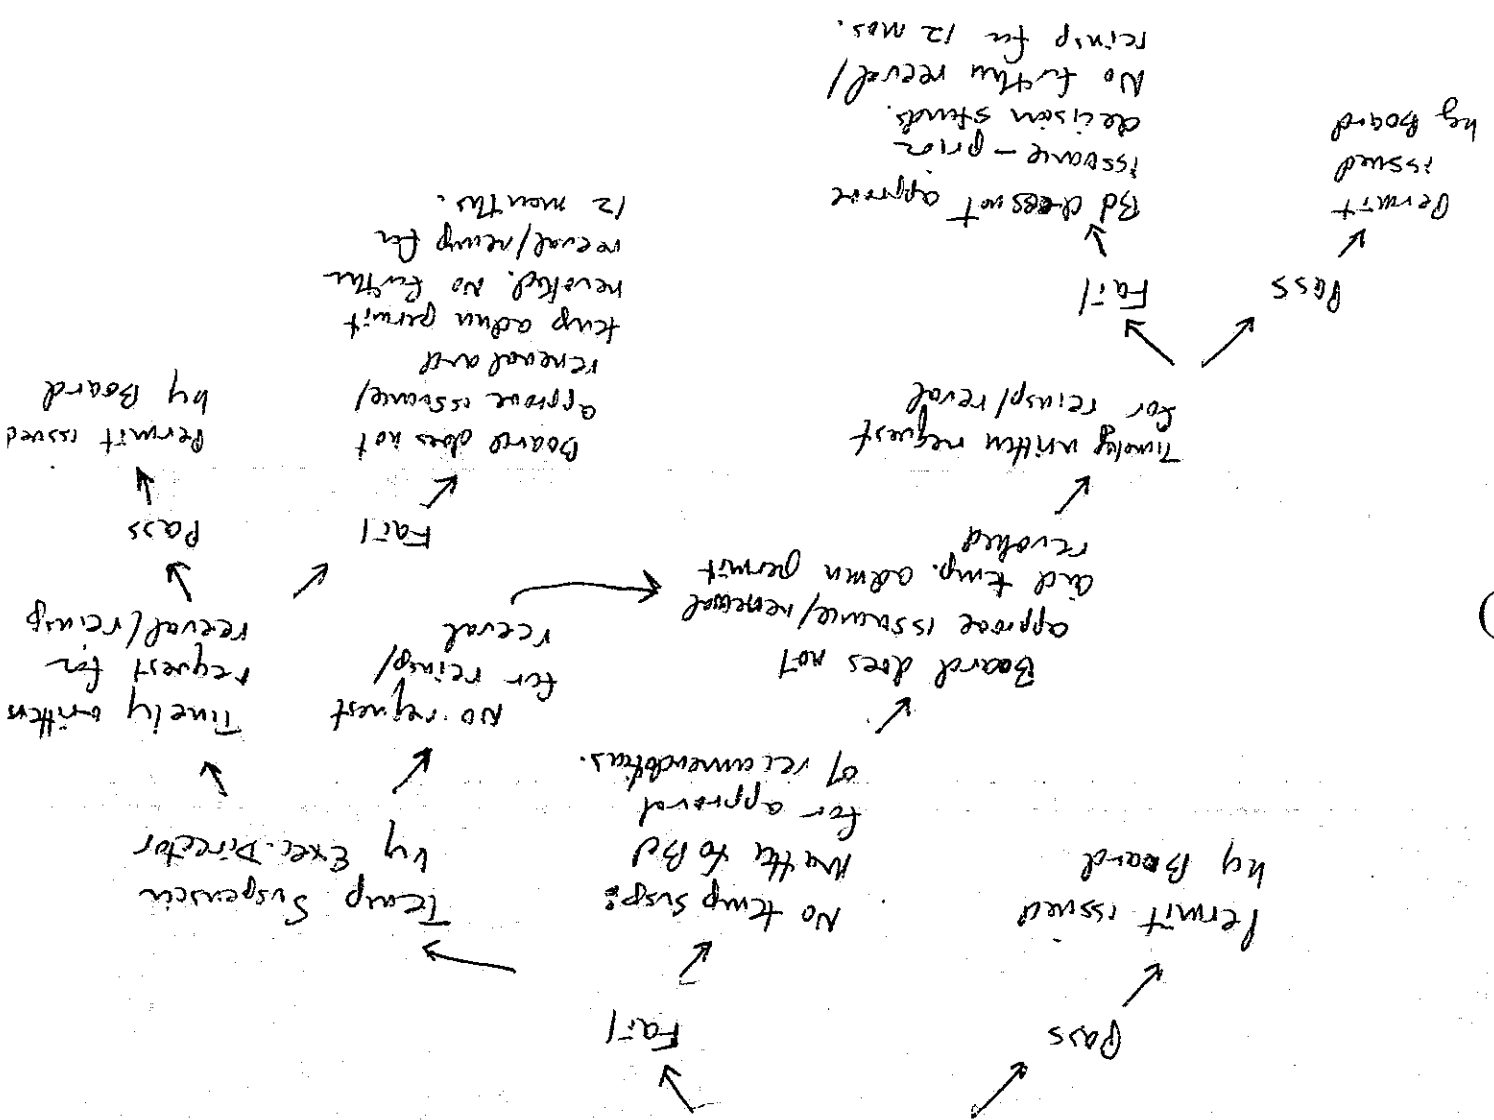 Pass
Permit issued
by Board
Fail
No temp susp:
Matter to Bd
for approval
of recommendations.
Temp Suspension
by Exec. Director
Board does not
approve issuance/renewal
and temp. admn permit
revoked
No request
for reinsp/
reeval
Timely written
request for
reeval/reinsp
Timely written request
for reinsp/reval
Fail
Board does not
approve issuance/
renewal and
temp admn permit
revoked. No further
reeval/reinsp for
12 months.
Pass
Permit issued
by Board
Pass
Permit
issued
by Board
Fail
Bd does not approve
issuance - prior
decision stands.
No further reeval/
reinsp for 12 mos.